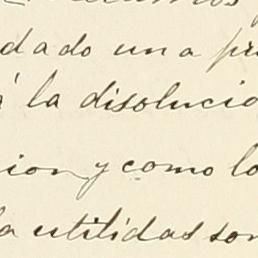 dado una pr
á la disolucio
ion y como lo
la utilidas son